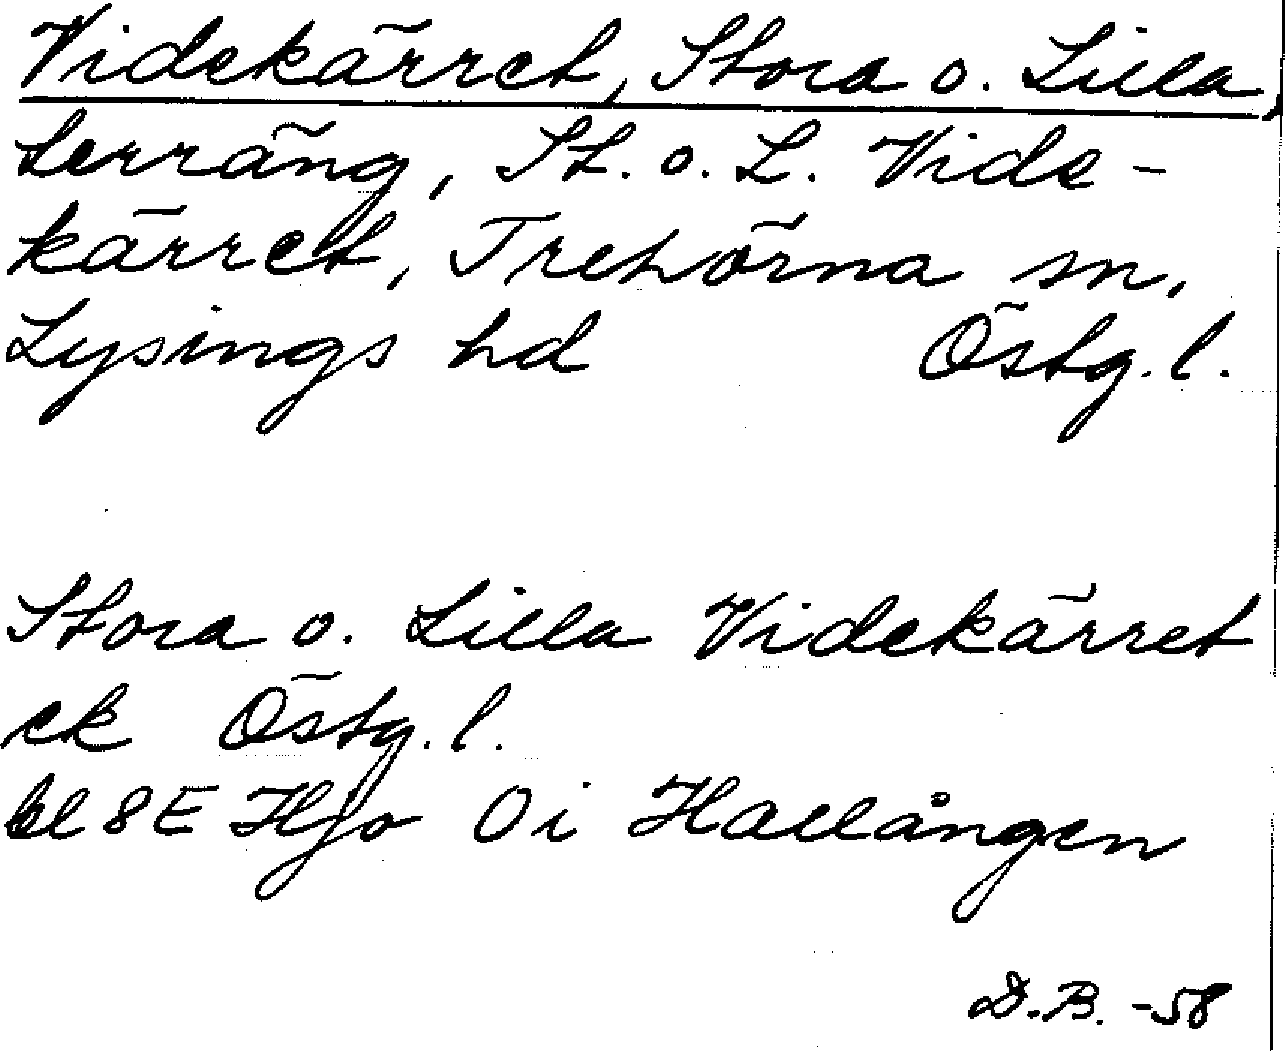 Videkärret, Stora o. Lilla,
terräng, St. o. L. Vide-
kärret, Trehörna sn,
Lysings hd Östg. l.
Stora o. Lilla Videkärret
ek Östg. l.
bl 8E Hjo 0i Hallången
D.B. -58